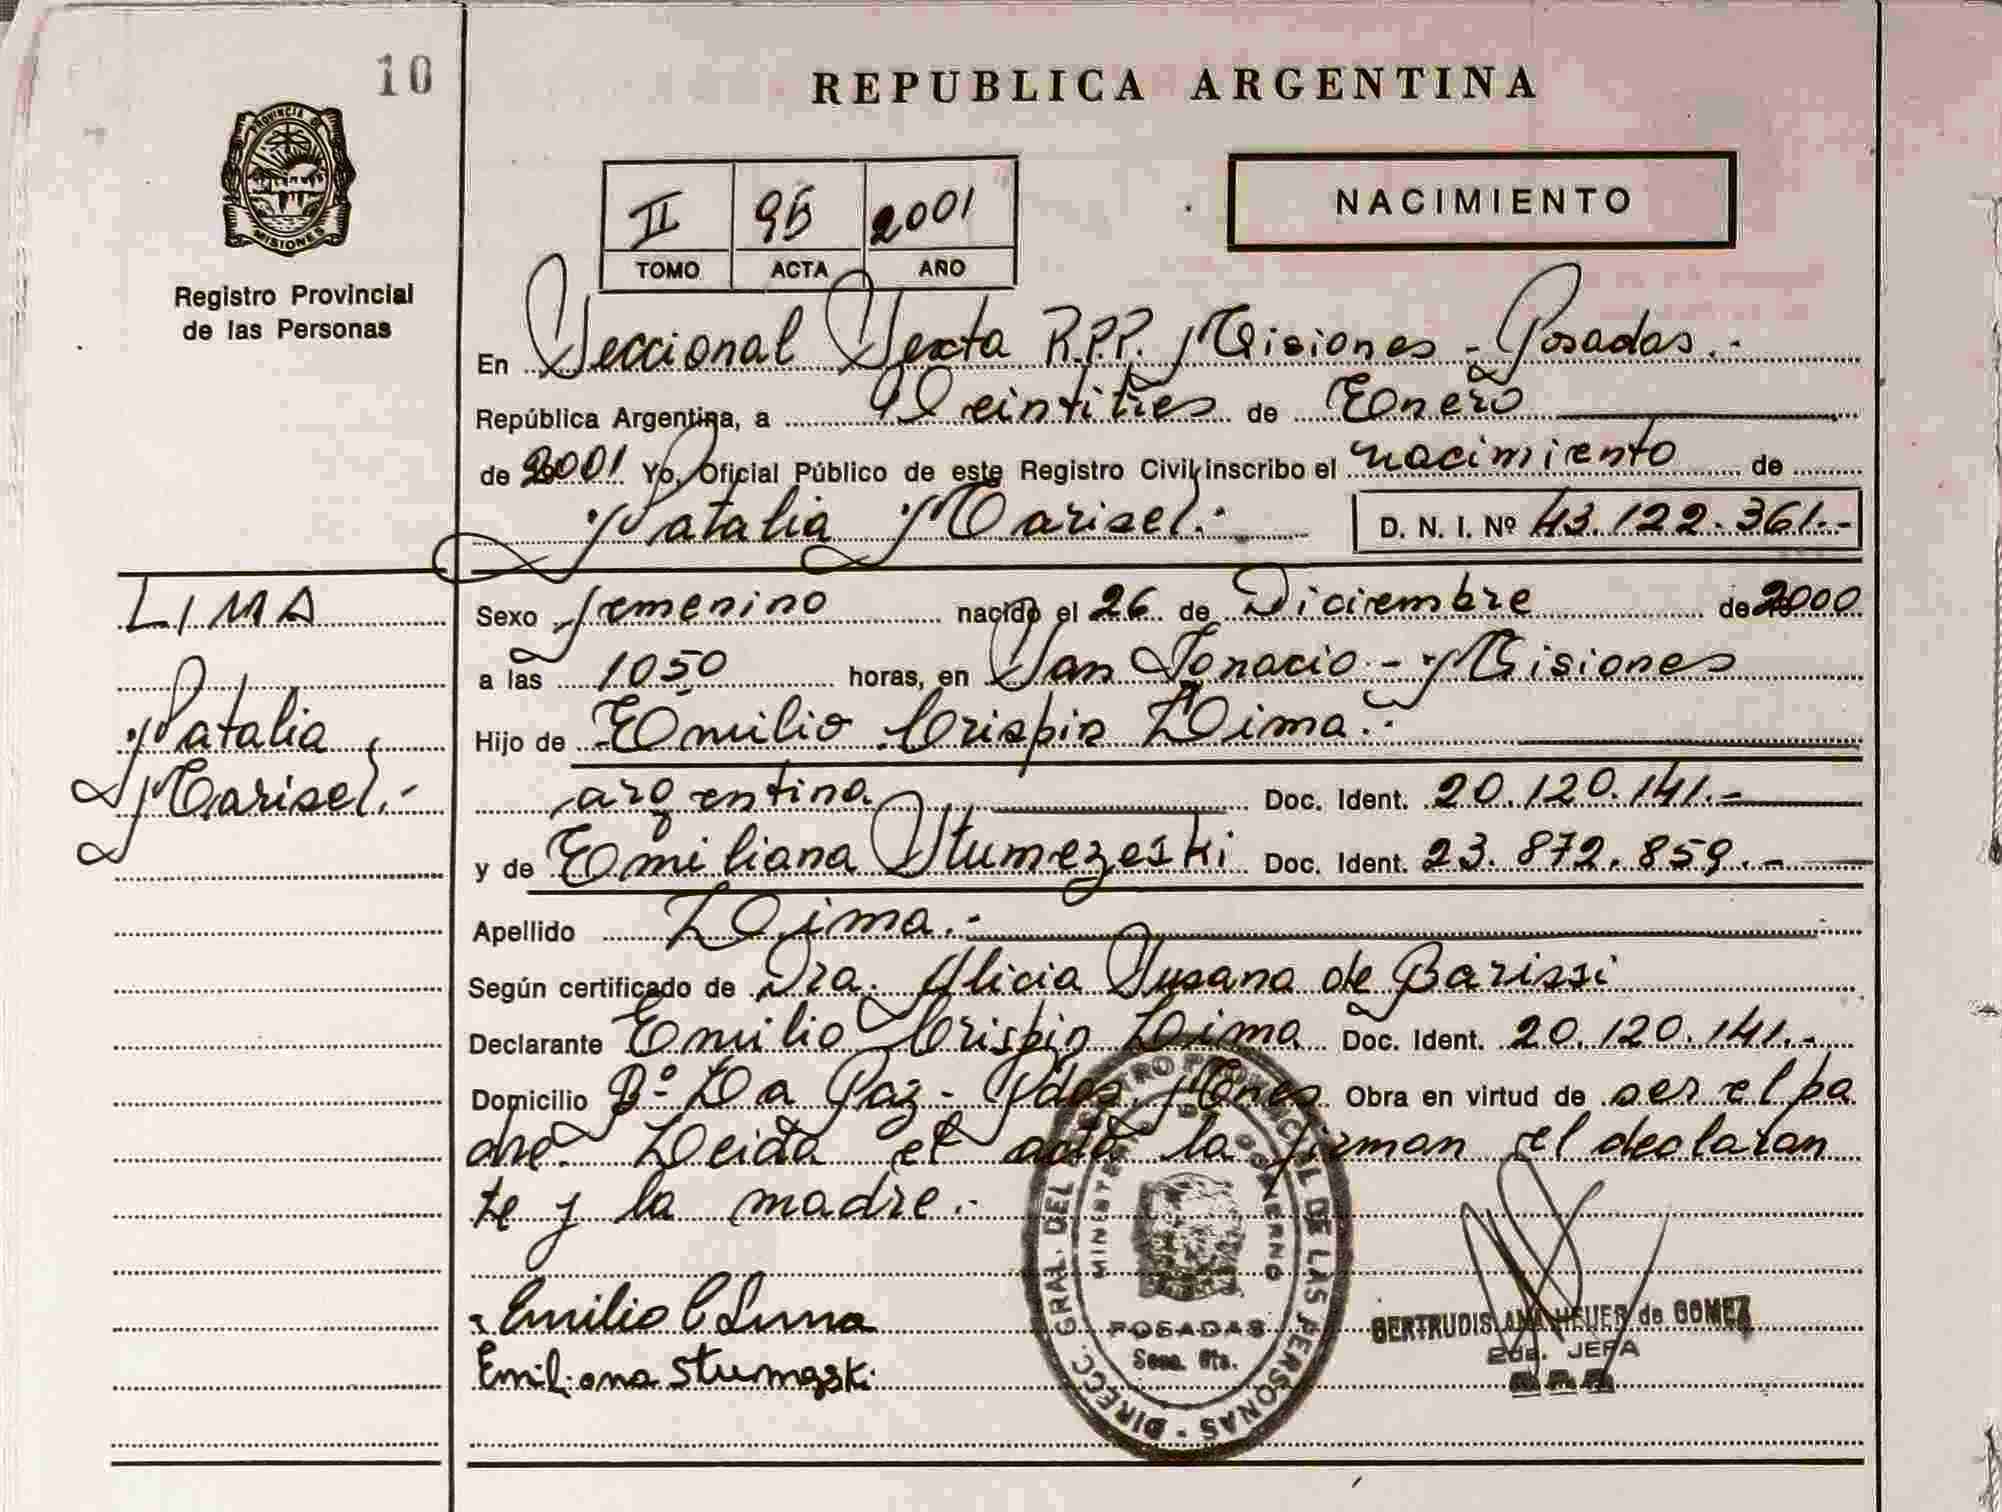 10
REPUBLICA ARGENTINA
PROVINCIA DE
MISIONES
Registro Provincial
de las Personas
II 95 2001
TOMO ACTA AÑO
NACIMIENTO
En Seccional Sexta R.P.P. Misiones - Posadas.-
República Argentina, a Veintitres de Enero
de 2001 Yo, Oficial Público de este Registro Civil inscribo el nacimiento de
Natalia Marisel.- D. N. I. Nº 43.122.361.-
LIMA
Natalia
Marisel.-
Sexo femenino nacido el 26 de Diciembre de 2000
a las 1050 horas, en San Ignacio - Misiones
Hijo de Emilio Crispin Lima.-
argentino Doc. Ident. 20.120.141.-
y de Emiliana Stumezeski Doc. Ident. 23.872.859.-
Apellido Lima.-
Según certificado de Dra. Alicia Susana de Barissi
Declarante Emilio Crispin Lima Doc. Ident. 20.120.141.-
Domicilio Bº La Paz - Pdas. Mnes Obra en virtud de ser el pa
dre. Leida el acta la firman el declaran
te y la madre.-
Emilio C Lima
Emiliana Stumeski
DIRECC. GRAL. DEL REGISTRO PROVINCIAL DE LAS PERSONAS
MINISTERIO DE GOBIERNO
POSADAS
GERTRUDIS ANA HEUER de GOMEZ
2da. JEFA